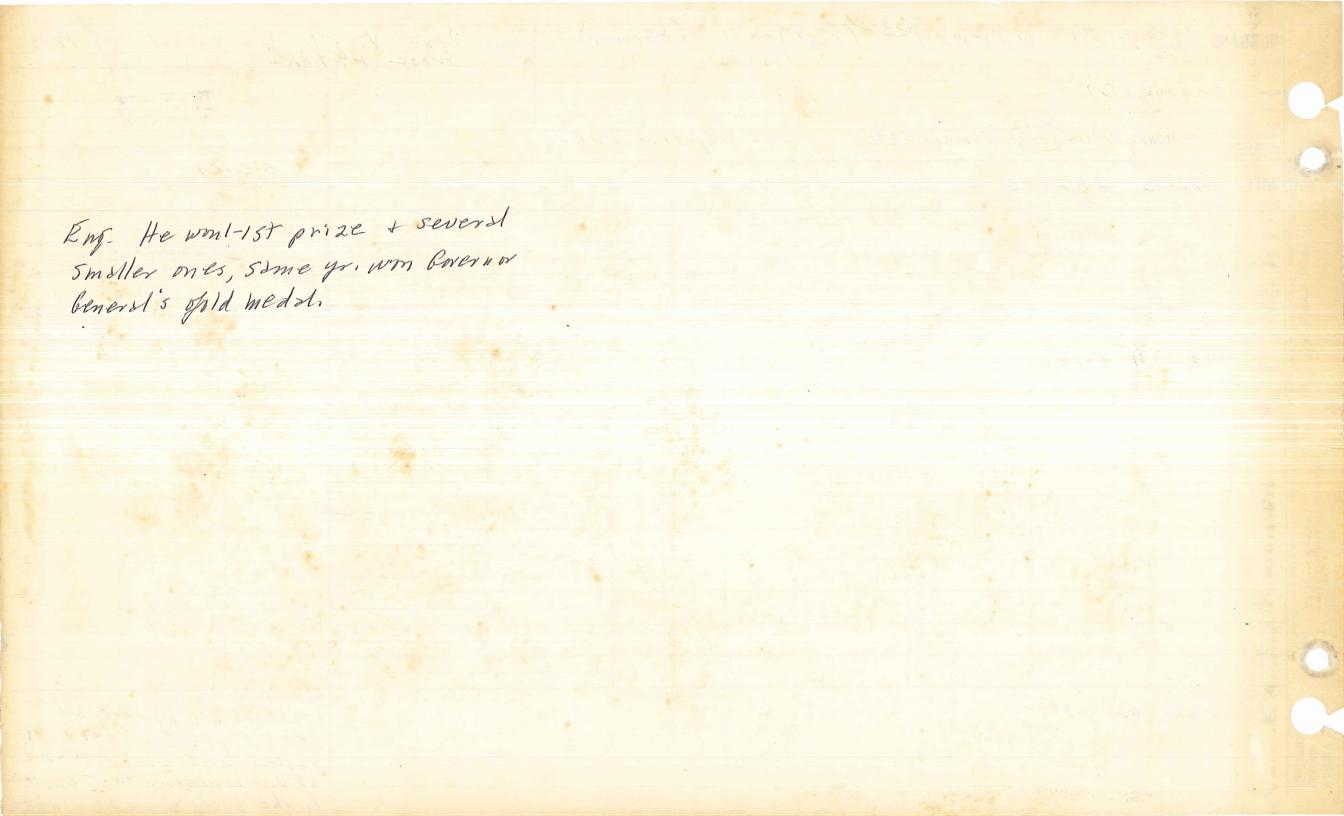 Eng. He won 1st prize & several
smaller ones, same yr. won Governor
General's gold medal.